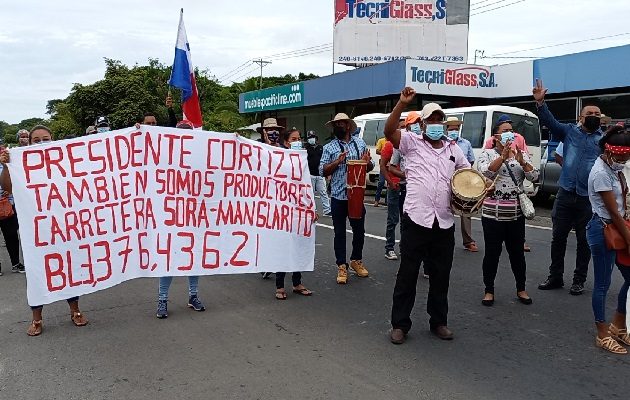 TecniGlass,S.A
240-8146
TecniGlass,S.A.
mueblespacificoline.com
PRESIDENTE CORTIZO
TAMBIEN SOMOS PRODUCTORES
CARRETERA SORA-MANGLARITO
BL3,376,436.21